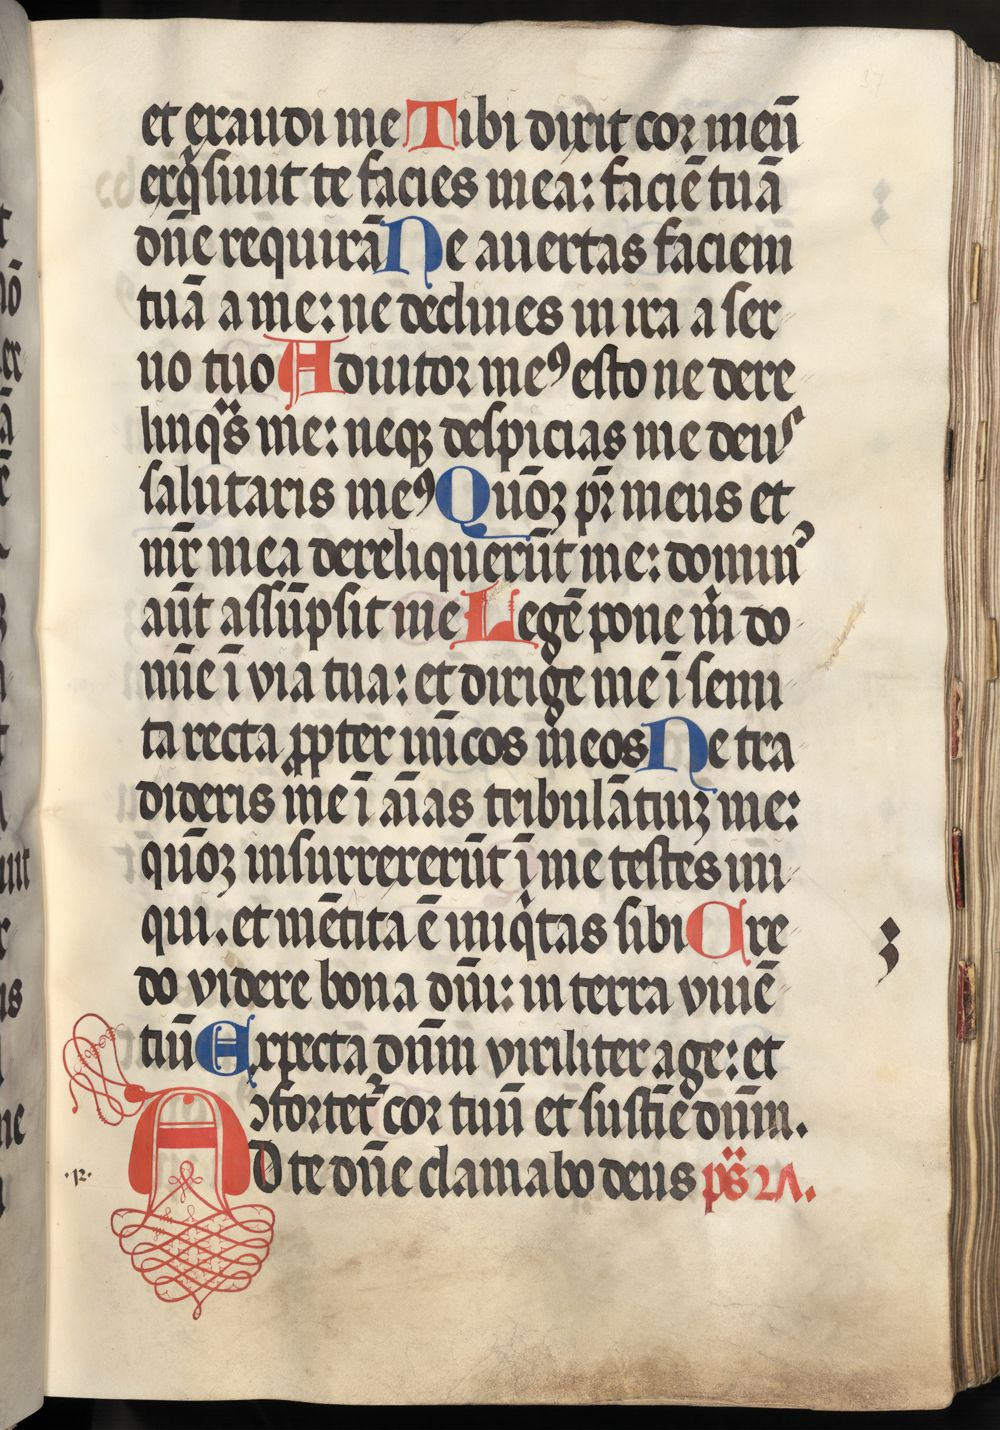 et exaudi me Tibi dixit cor meū
exq̇siuit te facies mea: faciē tuā
dn̄e requirā Ne auertas faciem
tuā a me: ne declines in ira a ser
uo tuo Adiutor meꝰ esto ne dere
linq̈̃s me: neqꝫ despicias me deus
salutaris meꝰ Qūoꝫ pr̄ meus et
mr̄ mea dereliquerūt me: dominꝰ
aūt assūpsit me Legē pone m̄ do
mīe ī via tua: et dirige me ī semi
ta recta ꝓpter īmicos meos Ne tra
dideris me ī aīas tribulātiuꝫ me:
qūoꝫ insurrexerūt ī me testes ini
qui. et mētita ē iniq̇tas sibi Cre
do videre bona dn̄i: in terra viuē
tiū Expecta dn̄m viriliter age: et
ꝯfortet᷑ cor tuū et sustīe dn̄m.
AD te dn̄e clamabo deus ps̄ 2Λ.
·12·